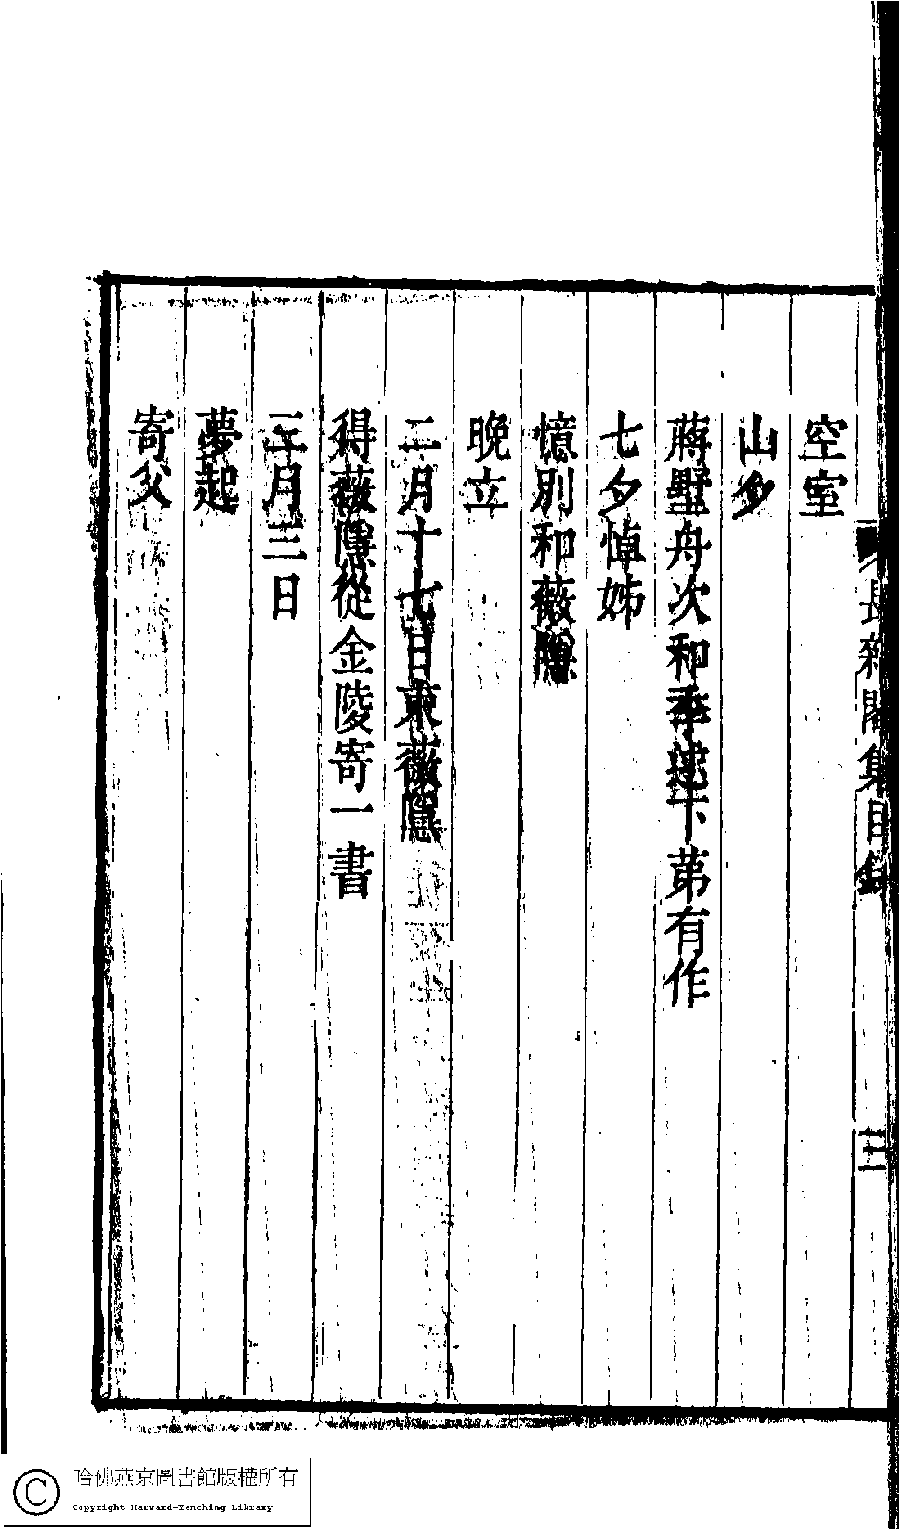 長離閣集目錄
三
空室
山夕
蔣墅舟次和季逑下苐有作
七夕悼姊
憶別和薇隱
晚立
二月十七日東薇隱
得薇隱從金陵寄一書
三月三日
夢起
寄父
哈佛燕京圖書館版權所有
Copyright Harvard-Yenching Library